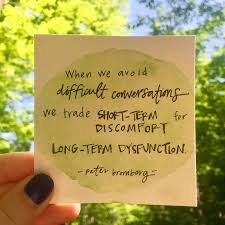 When we avoid
difficult conversations
we trade SHORT-TERM for
DISCOMFORT
LONG-TERM DYSFUNCTION.
- peter bromberg -